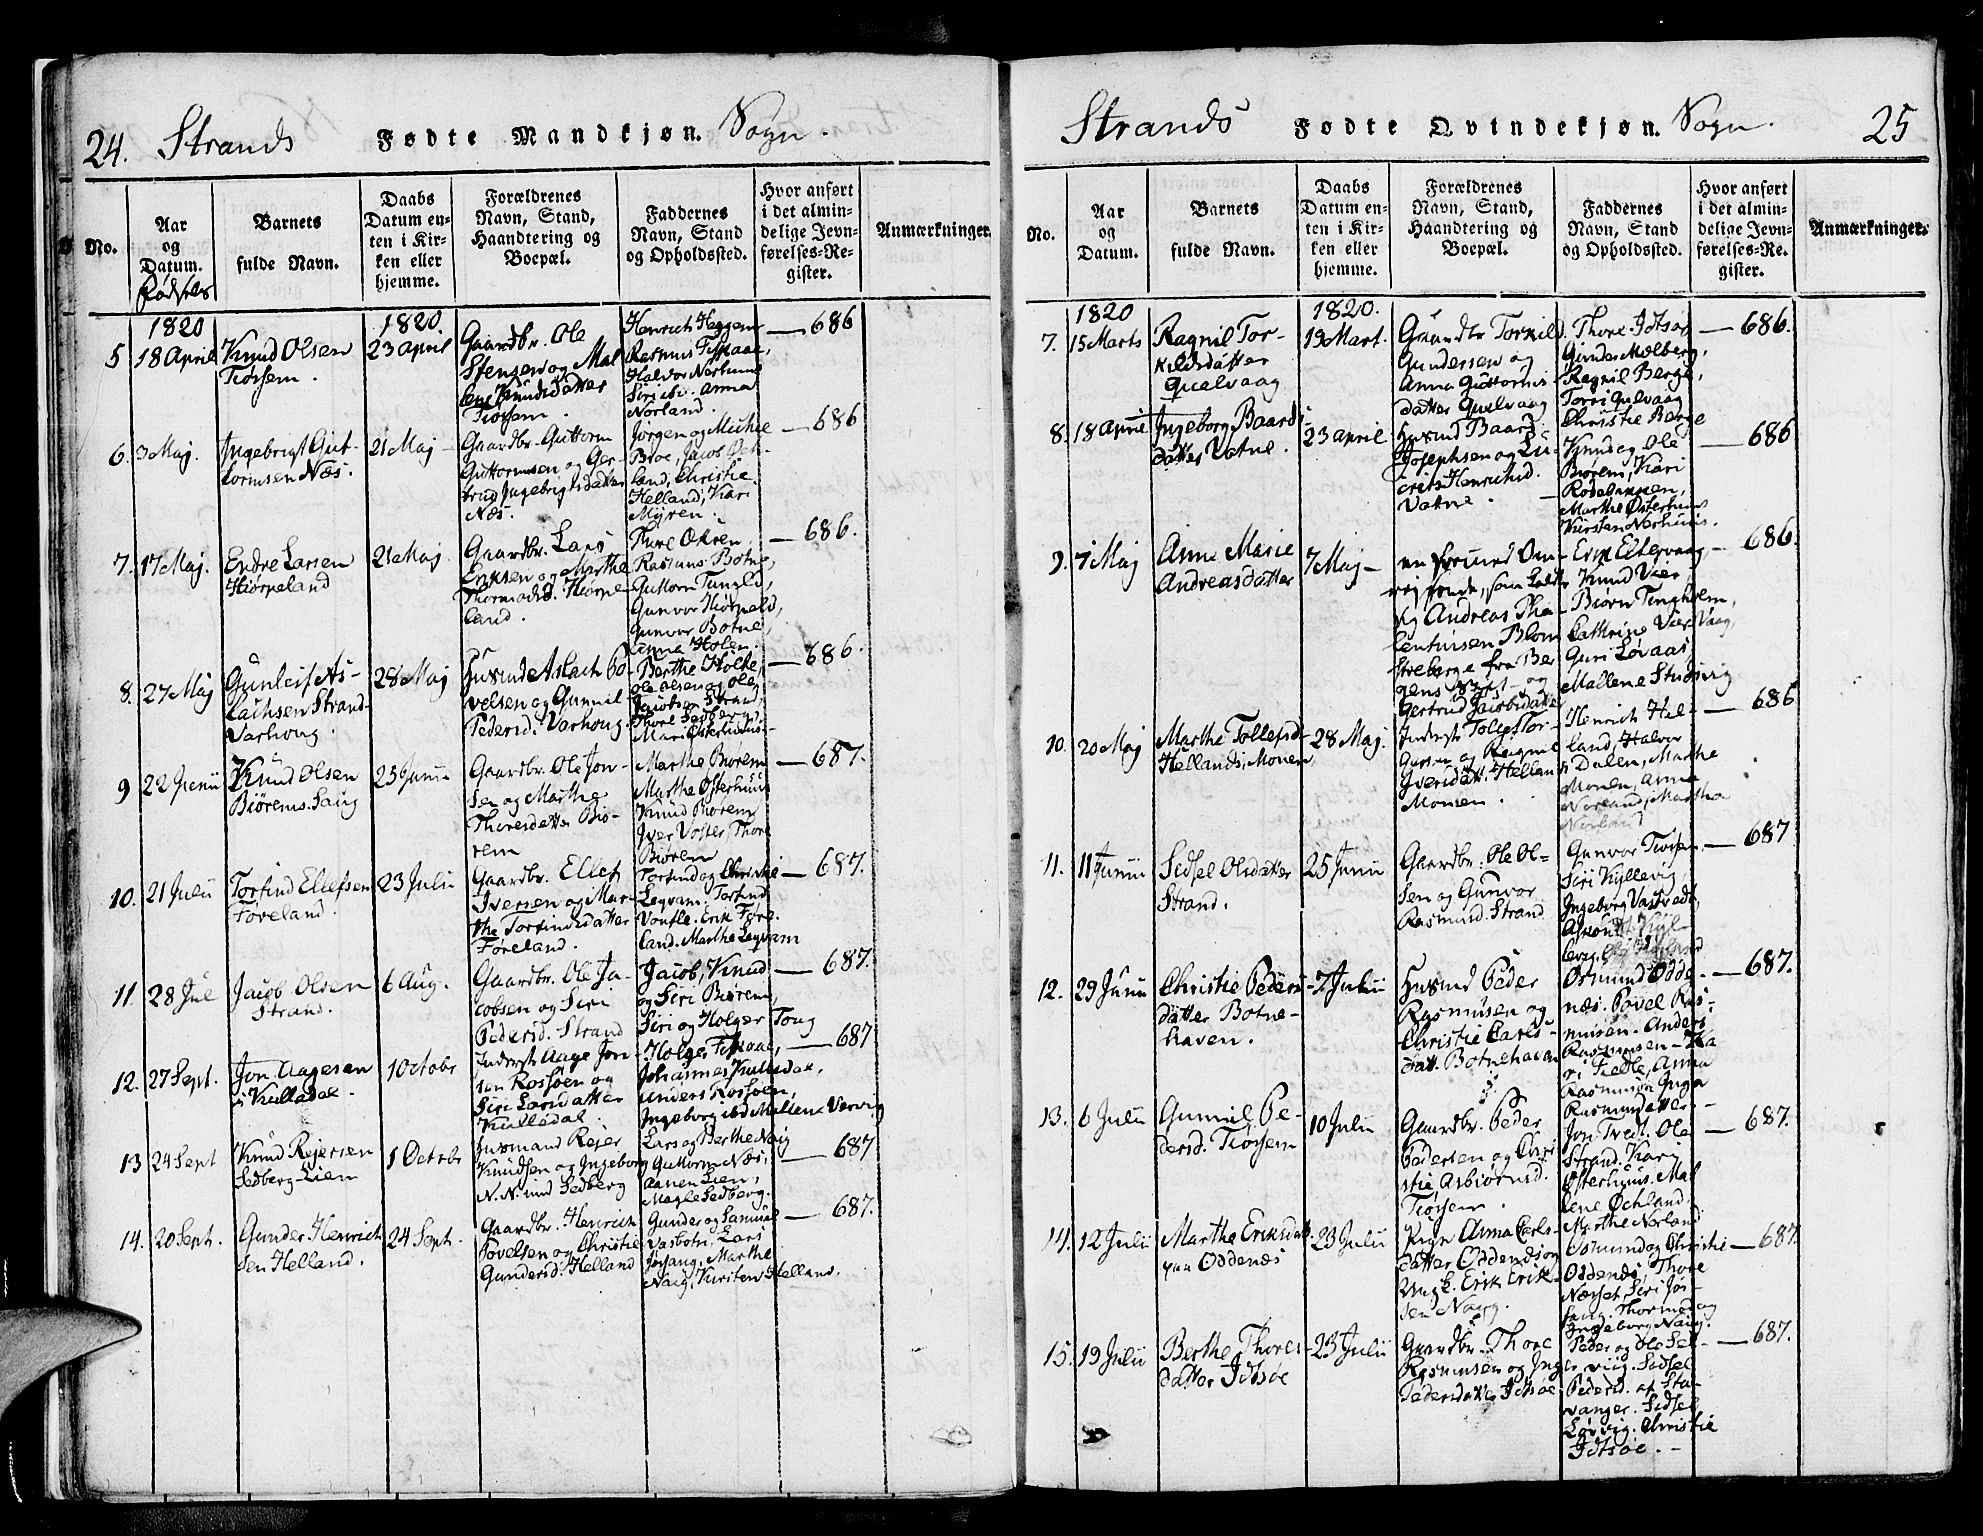 24. Strands Fødte Mandkjøn. Sogn.
No.
Aar
og
Datum.
Fødsels
Barnets
fulde Navn.
Daabs
Datum en-
ten i Kir-
ken eller
hjemme.
Forældrenes
Navn, Stand,
Haandtering og
Boepæl.
Faddernes
Navn, Stand
og Opholdssted.
Hvor anført
i det almin-
delige Jevn-
førelses-Re-
gister.
Anmærkninger.
5
1820
18 April
Knud Olsen
Tiørsem.
1820.
23 April
Gaardbr. Ole
Stensen og Mal
ene Knudsdatter
Tiørsem.
Rasmus Fiskaae,
Anna
Norland.
686
6.
3 Maj.
Ingebrigt Gut-
tormsen Næs.
21 Maj
Gaardbr. Guttorm
Guttormsen og Ger-
trud Ingebrigtsdatter
Næs.
Jørgen og Michel
land, Christie
Helland, Kari
Myren.
686
7.
17 Maj.
Endre Larsen
Hiørpeland
21 Maj.
Gaardbr. Lars
Eriksen og Marthe
Thormodsd. Hiørpe
land.
Rasmus Botne,
Guttorm Tungld,
Gunvor Hiørpeld,
Gunvor Botne,
Anna Holen.
686.
8.
27 Maj
Gunleif As-
lachsen Strand-
Varhoug.
28 Maj
Husmd Aslach Po-
velsen og Gunnil
Pedersd. Varhoug.
Berthe Holte,
Ole Olsen og Ole
Jacobsen Strand,
Thore Sedberg,
Mari Østerhuus.
686.
9
22 Junii
Knud Olsen
Biørems. Saug
25 Junii
Gaardbr. Ole Jon-
sen og Marthe
Thoresdatter Biø-
rem
Marthe Biørem
Marthe Østerhuus
Knud Biørem
Iver Voster, Thore
Biørem
687.
10.
21 Julii
Torfind Ellefsen
Føreland.
23 Julii
Gaardbr. Ellef
Iversen og Mar-
the Torfindsdatter
Føreland.
Torfind og Christie
Legvam. Torfind
Erik Føre-
land. Marthe Legvam
687.
11.
28 Jul
Jacob Olsen
Strand.
6 Aug.
Gaardbr. Ole Ja-
cobsen og Siri
Pedersd. Strand
Jacob, Knud
og Siri Biørem,
Siri og Holger Toug
687.
12.
27 Sept.
Jon Aagesen
i Kulledal.
1 Octobr
Inderst Aage Jon-
sen Rossøen og
Siri Larsdatter
Kulledal.
Holger Fiskaae,
Johannes Kulledal,
Anders Rossøen,
Ingeborg ibd Malene Vervig
687
13
24 Sept
Knud Rejersen
Sedberg-Lien
1 Octobr
Husmand Rejer
Knudsen og Ingeborg
N. N. und Sedberg
Lars og Berthe Naig
Guttorm Næs,
Aanen Lien,
Magle Sedberg.
687
14.
20 Sept.
Gunder Henrich
sen Helland.
24 Sept.
Gaardbr. Henrich
Tovelsen og Christie
Gundersd. Helland
Gunder og Samuel
Vasbotn, Lars
Jøssang, Marthe
Naig, Kirsten Helland.
687.
Strands Fødte Qvindekjøn. Sogn. 25
No.
Aar
og
Datum.
Barnets
fulde Navn.
Daabs
Datum en-
ten i Kir-
ken eller
hjemme.
Forældrenes
Navn, Stand,
Haandtering og
Boepæl.
Faddernes
Navn, Stand
og Opholdssted.
Hvor anført
i det almin-
delige Jevn-
førelses-Re-
gister.
Anmærkninger.
7.
1820
15 Marts
Ragnil Tor-
kildsdatter
Qualvaag
1820.
19 Mart.
Gaardbr Torkild
Gundersen og
Anna Guttorms-
datter Qualvaag
Thore Idtsøe
Gunder Molberg,
Ragnil Berge,
Torri Qualvaag
Christie Berge
686.
8.
18 April
Ingeborg Baards-
datter Vatne.
23 April
Husmd Baard
Josephsen og Lu-
cretia Henrichsd.
Vatne.
Knud og Ole
Biørem, Kari
Rødebakken,
Marthe Østerhuus
Kirsten Nørhuus.
686
9.
7 Maj
Anne Marie
Andreasdatter
7 Maj
en formd Om-
Andreas Tha-
lentinsen Blom
streberge fra Ber
gens
Gertrud Jacobsdatter
Erik Eltervaag
Knud Vier
Biørn Tingholm,
Cathrine Vier Vaag,
Guri Løvaas
Mallene Studvig
686.
10.
20 Maj
Marthe Tollefsd-
Hellands. Monen
28 Maj.
Inderst Tollef Tor-
gersen og Ragnil
Iversdatt. Hellands
Momen.
Henrich Hel-
land, Halvor
Dalen, Marthe
Monen, Anna
Norland, Martha
Norland
686
11.
11 Junii
Sidsel Olsdatter
Strand.
25 Junii
Gaardbr. Ole Ol-
sen og Gunvor
Rasmusd. Strand
Gunvor Tiørsem
Siri Kyllevig,
Ingeborg Vastvedt,
687
12.
29 Junii
Christie Peders-
datter Botne-
haven.
7 Julii
Husmd Peder
Rasmusen og
Christie Carls-
datt. Botnehaven
Osmund Odde-
næs. Povel Ras-
musen. Anders
Rasmusen-Ka
ri Fielle, Anna
Rasmusdr Inga
Rasmusdatter
687.
13.
6 Julii
Gunnil Pe-
dersd. Tiørsem
10 Julii
Gaardbr. Peder
Pedersen og Chri
stie Asbiørnsd.
Tiørsem.
Jon Tvedt. Ole
Strand. Kary
Østerhuus. Mal
ene Øchland.
Marthe Norland
687.
14.
12 Julii
Marthe Eriksdatt.
paa Oddenæs
23 Julii
Pige Anna Carls-
datter Oddenæs og
Ungk. Erik Erik-
sen Naig.
Osmund og Christie
Oddenæs, Thore
Næsset, Siri Jøs-
sang. Thormod og
Ingeborg Naig.
687.
15.
19 Julii
Berthe Thores-
datter Idtsøe
23 Julii
Gaardbr. Thore
Rasmusen og Inge
Pedersdatter Idtsøe
Peder og Ole Sel-
viig. Sidsel
Pedersd. af Sta-
vanger. Sidsel
Løvvig. Christie
Idtsøe.
687.